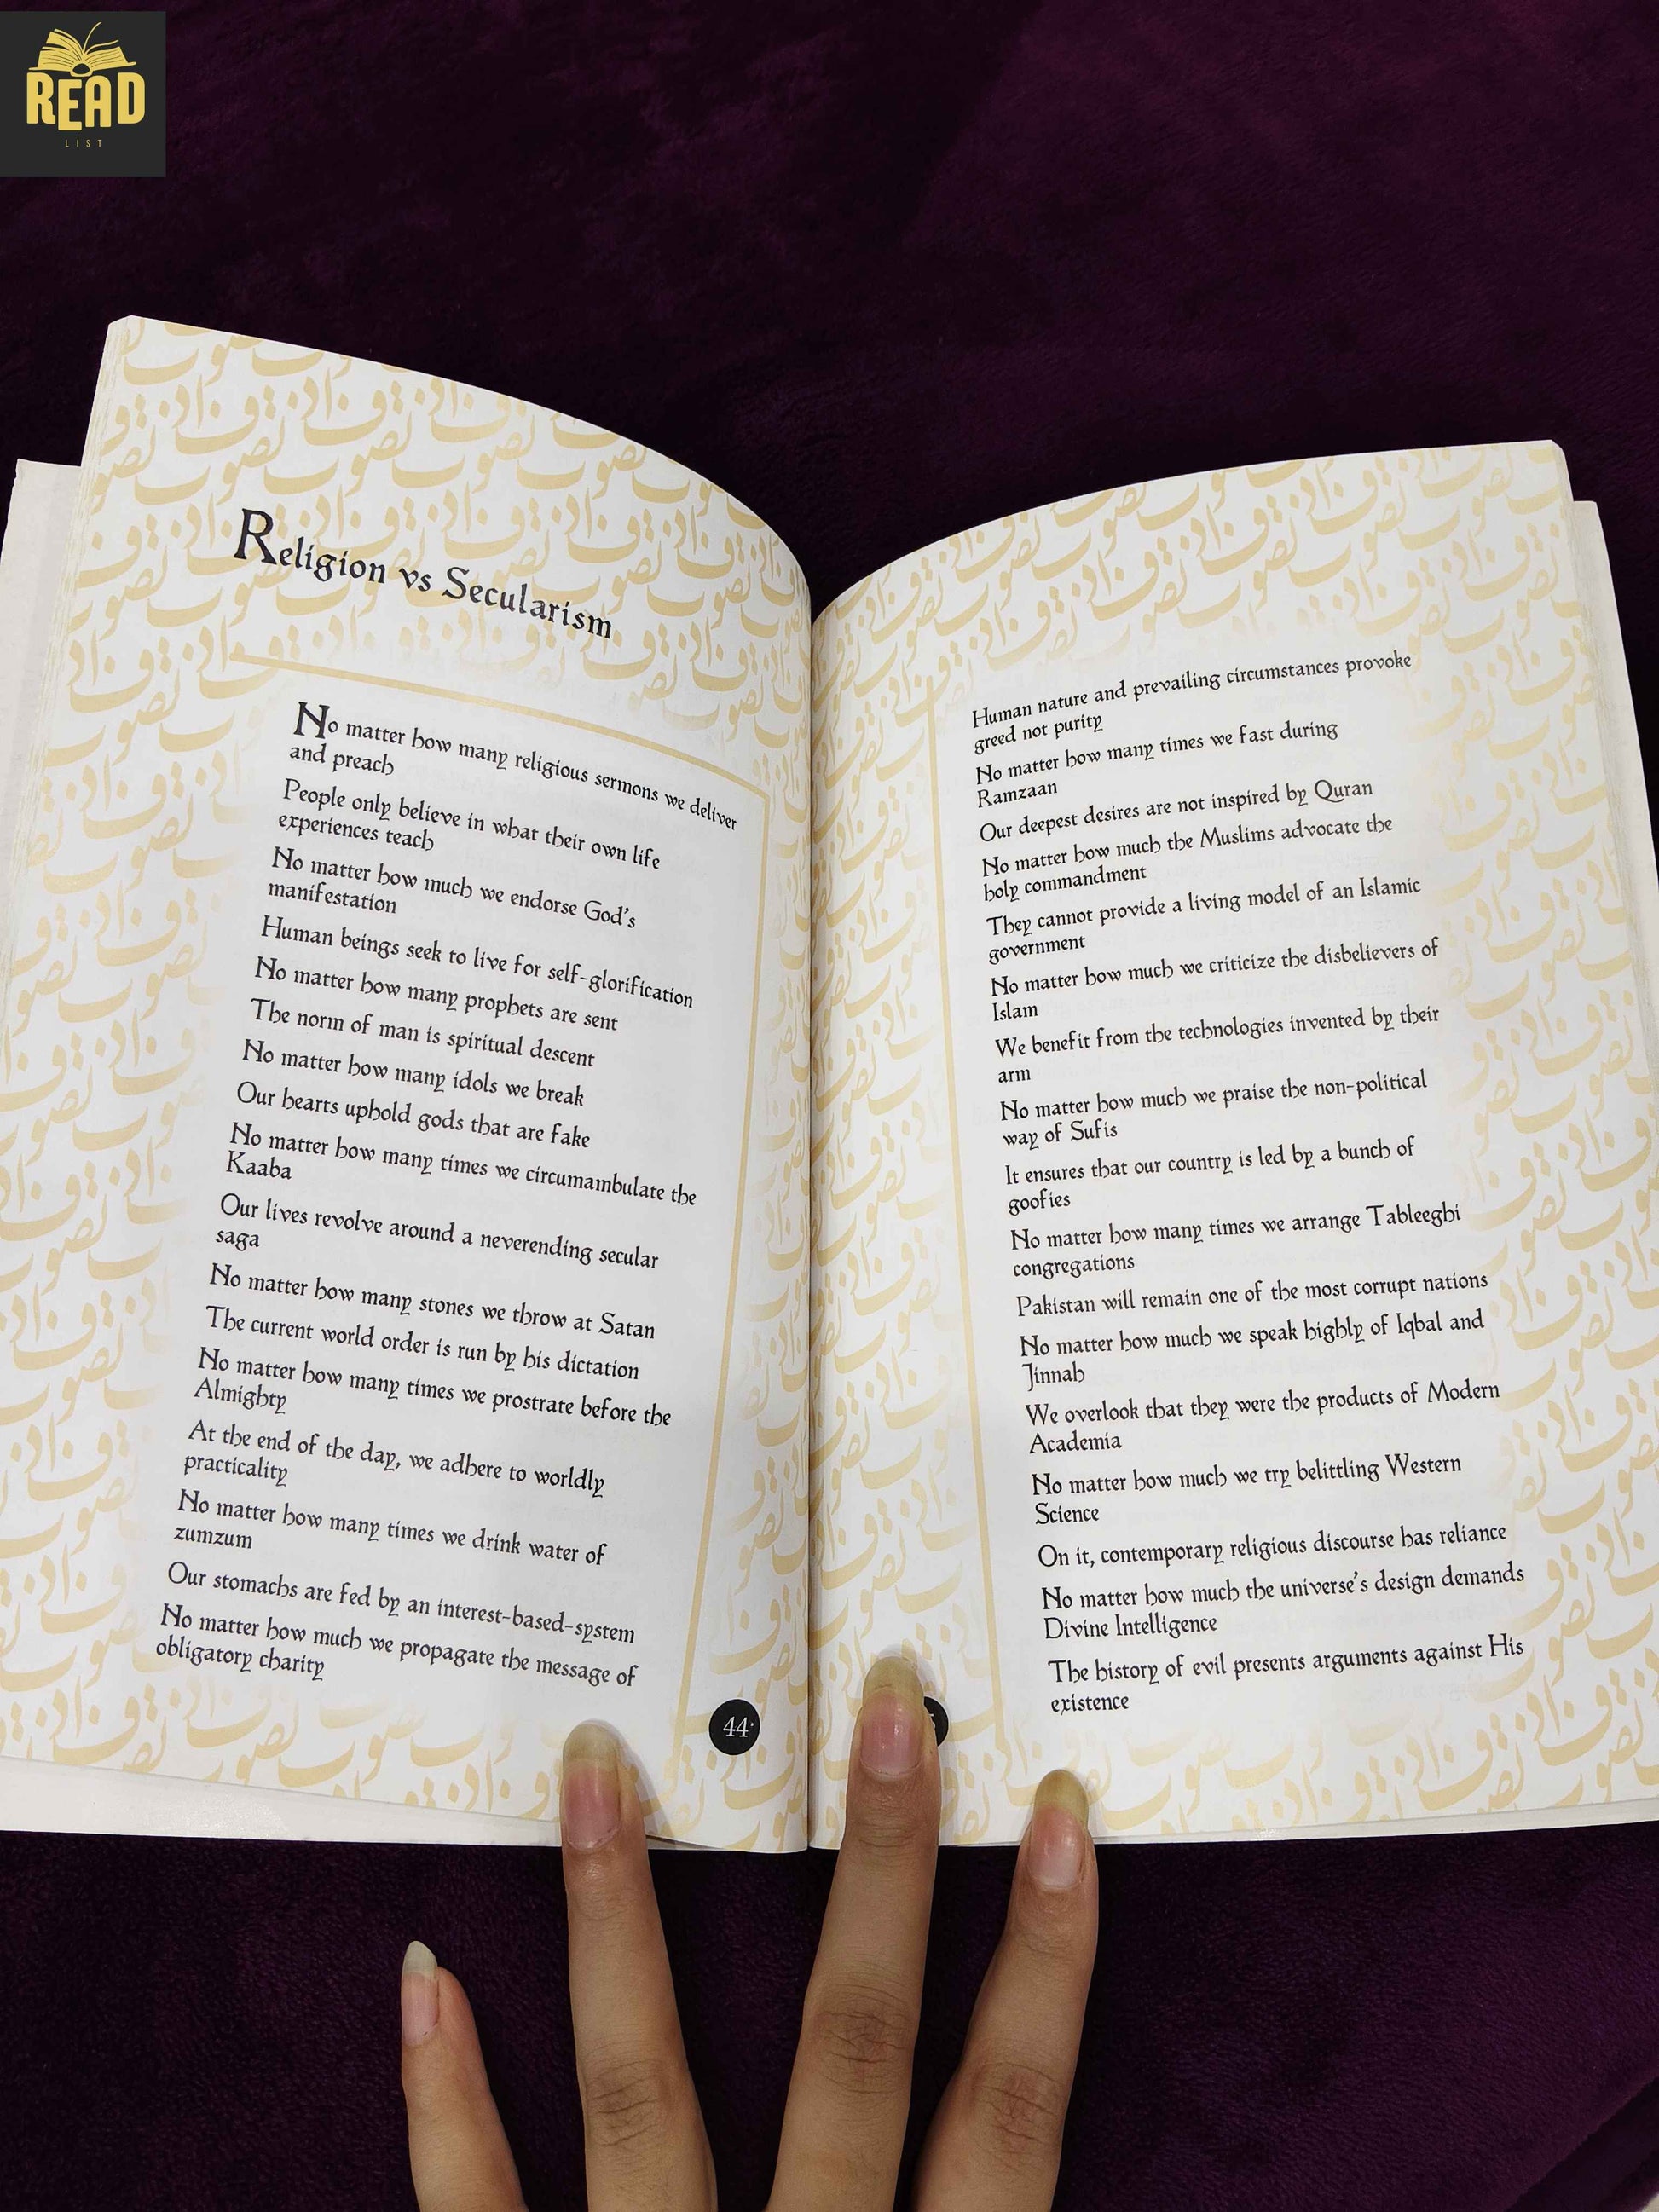 READ
LIST
Religion vs Secularism
No matter how many religious sermons we deliver
and preach
People only believe in what their own life
experiences teach
No matter how much we endorse God's
manifestation
Human beings seek to live for self-glorification
No matter how many prophets are sent
The norm of man is spiritual descent
No matter how many idols we break
Our hearts uphold gods that are fake
No matter how many times we circumambulate the
Kaaba
Our lives revolve around a neverending secular
saga
No matter how many stones we throw at Satan
The current world order is run by his dictation
No matter how many times we prostrate before the
Almighty
At the end of the day, we adhere to worldly
practicality
No matter how many times we drink water of
zumzum
Our stomachs are fed by an interest-based-system
No matter how much we propagate the message of
obligatory charity
44
Human nature and prevailing circumstances provoke
greed not purity
No matter how many times we fast during
Ramzaan
Our deepest desires are not inspired by Quran
No matter how much the Muslims advocate the
holy commandment
They cannot provide a living model of an Islamic
government
No matter how much we criticize the disbelievers of
Islam
We benefit from the technologies invented by their
arm
No matter how much we praise the non-political
way of Sufis
It ensures that our country is led by a bunch of
goofies
No matter how many times we arrange Tableeghi
congregations
Pakistan will remain one of the most corrupt nations
No matter how much we speak highly of Iqbal and
Jinnah
We overlook that they were the products of Modern
Academia
No matter how much we try belittling Western
Science
On it, contemporary religious discourse has reliance
No matter how much the universe's design demands
Divine Intelligence
The history of evil presents arguments against His
existence